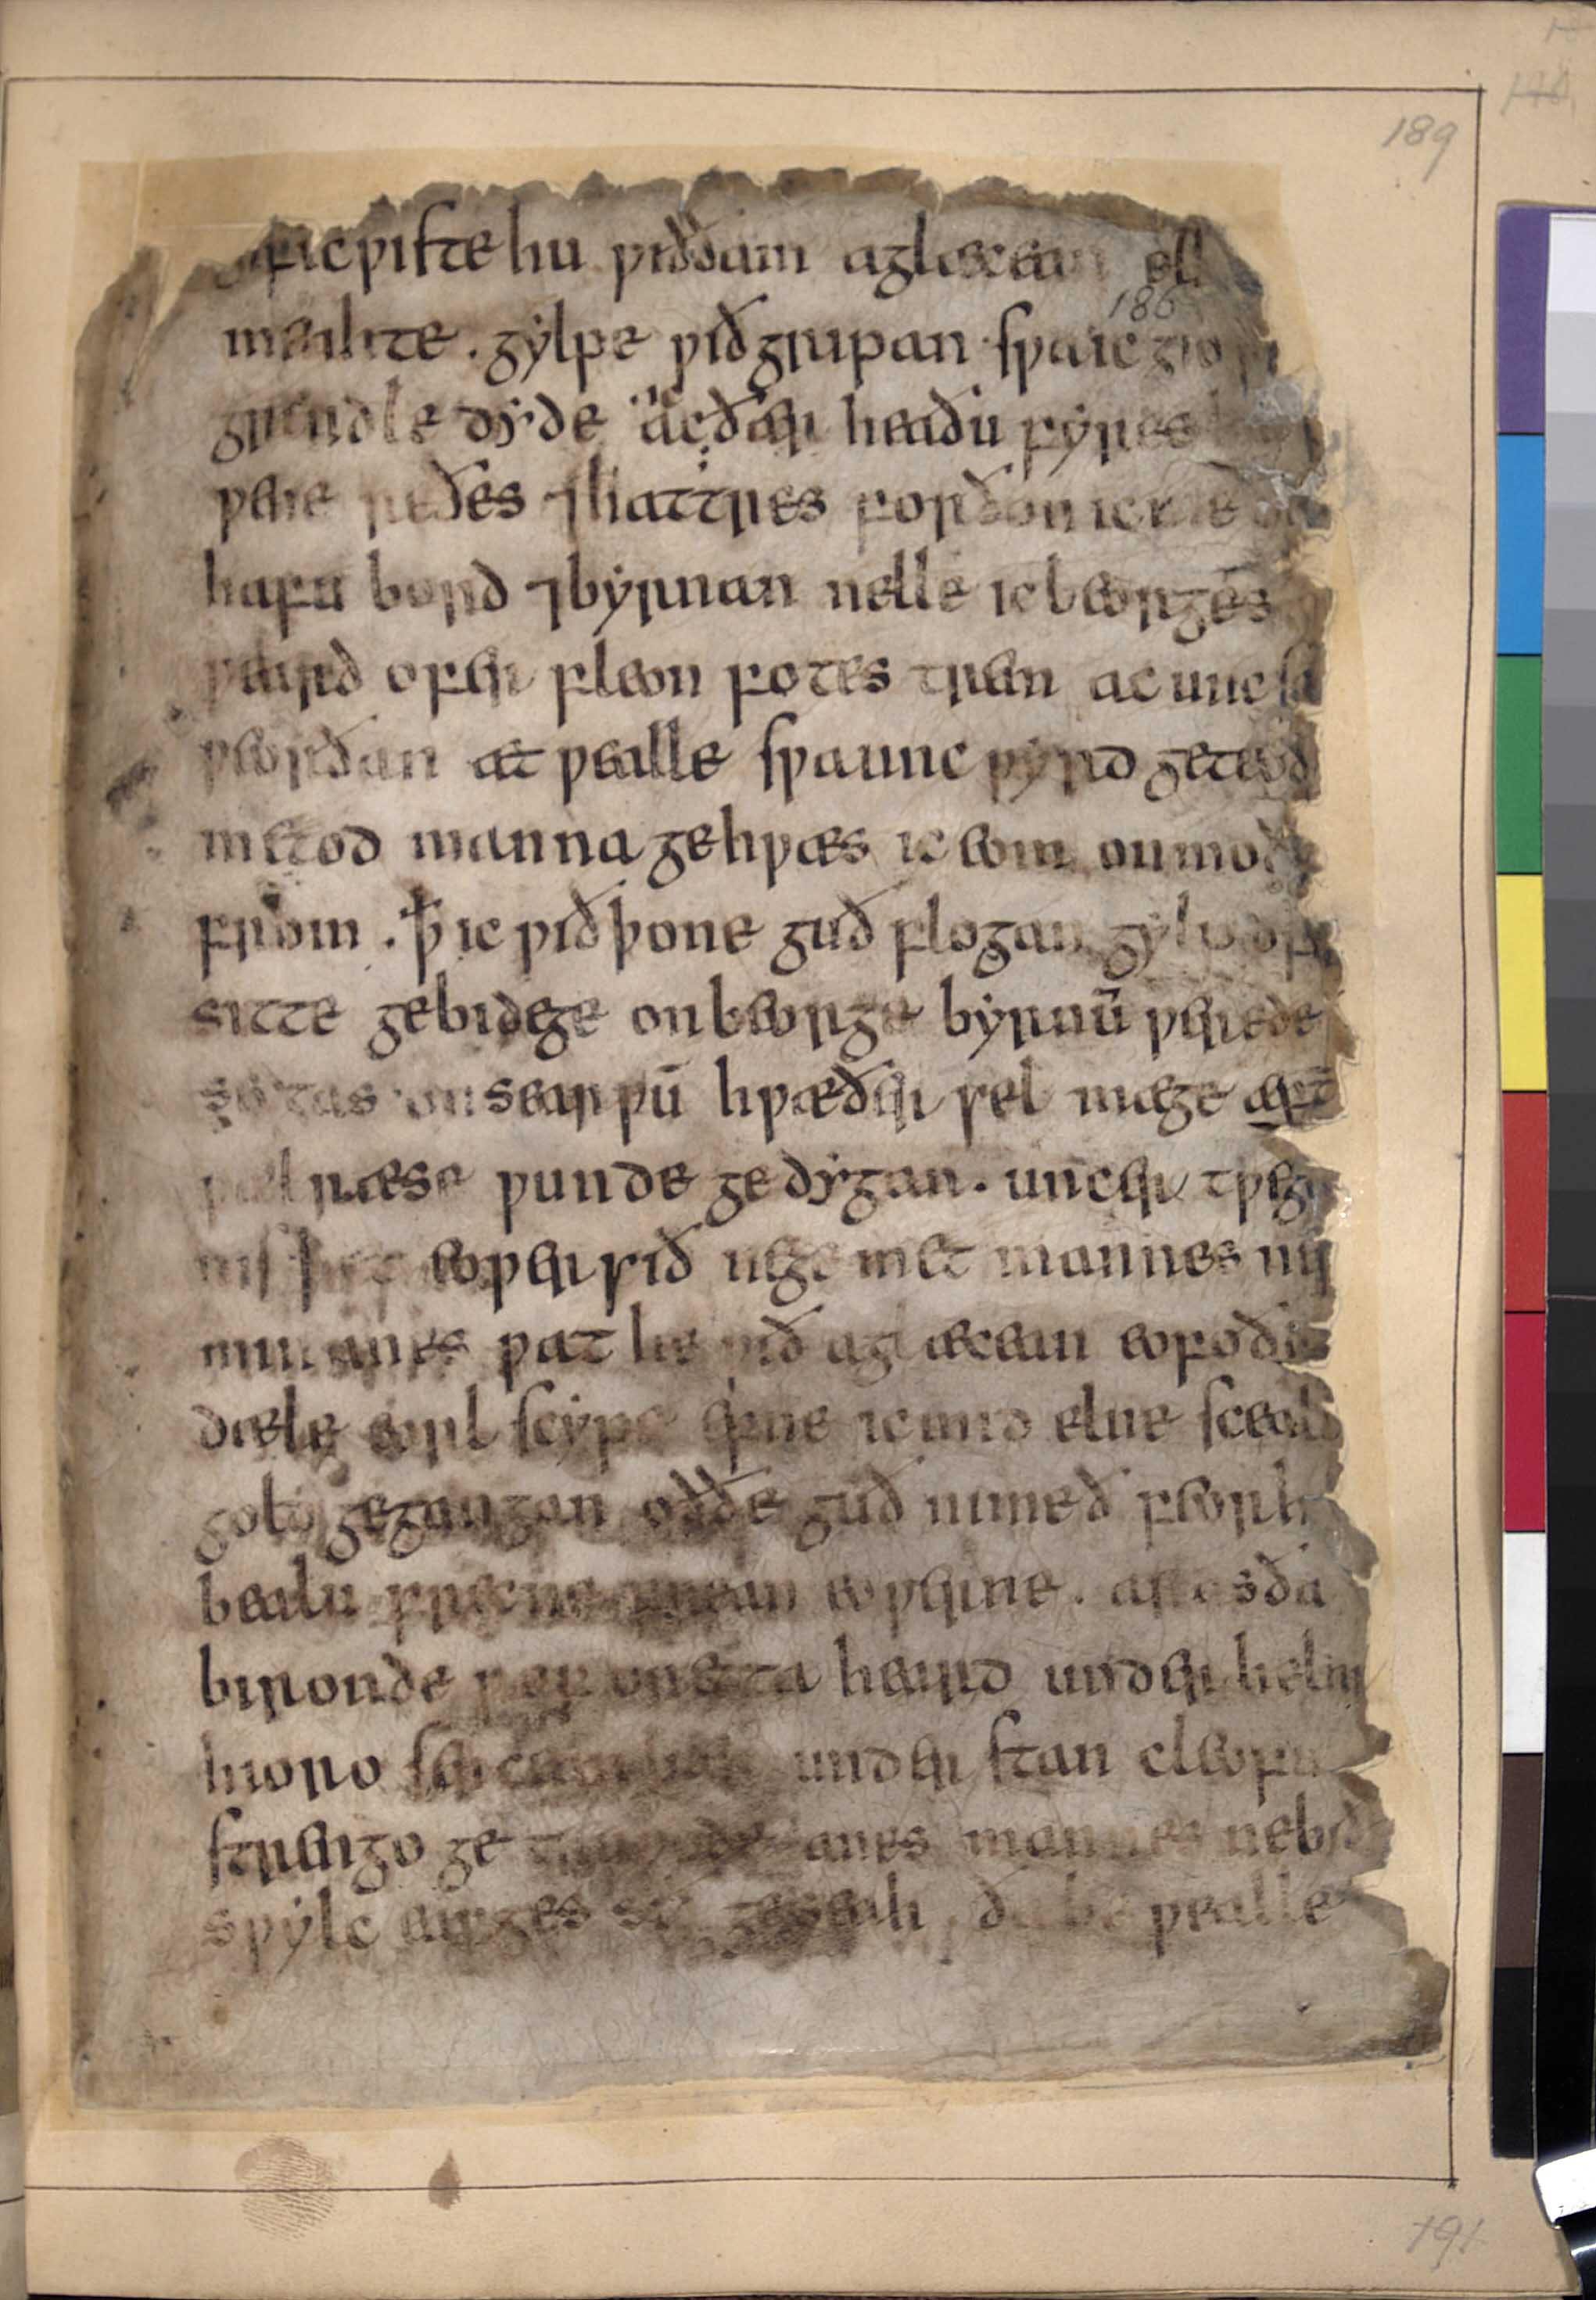 189
gif ic wiste hu wið ðam aglæcean ell
186
meahte . gylpe wið gripan swa ic gio wi
grendle dyde ac ðær heaðu fyres
wene reðes ⁊hattres forðon ic me on
hafu bord ⁊byrnan nelle ic beorges
weard ofer fleon fotes trem ac unc s
weorðan æt wealle swa unc wyrd geteoð
metod manna gehwæs ic eom on mode
from . ꝥ ic wið þone guð flogan gylp ofer
sitte gebide ge on beorge byrnū werede
secgas on searwū hwæðer sel mæge æft
wæl ræse wunde gedygan . uncer twega
nis eower sið ne gemet mannes
wat he wið aglæcean eofoðo
dæle eorl scype efne ic mid elne sceall
gold gegangan oððe guð nimeð feorh
bealu frecne frean eowerne . aras ða
bi ronde rof oretta heard under helm
hioro sercean bær under stan cleofu
strengo ge truwode anes mannes ne bið
swylc earges sið geseah ða be wealle
191